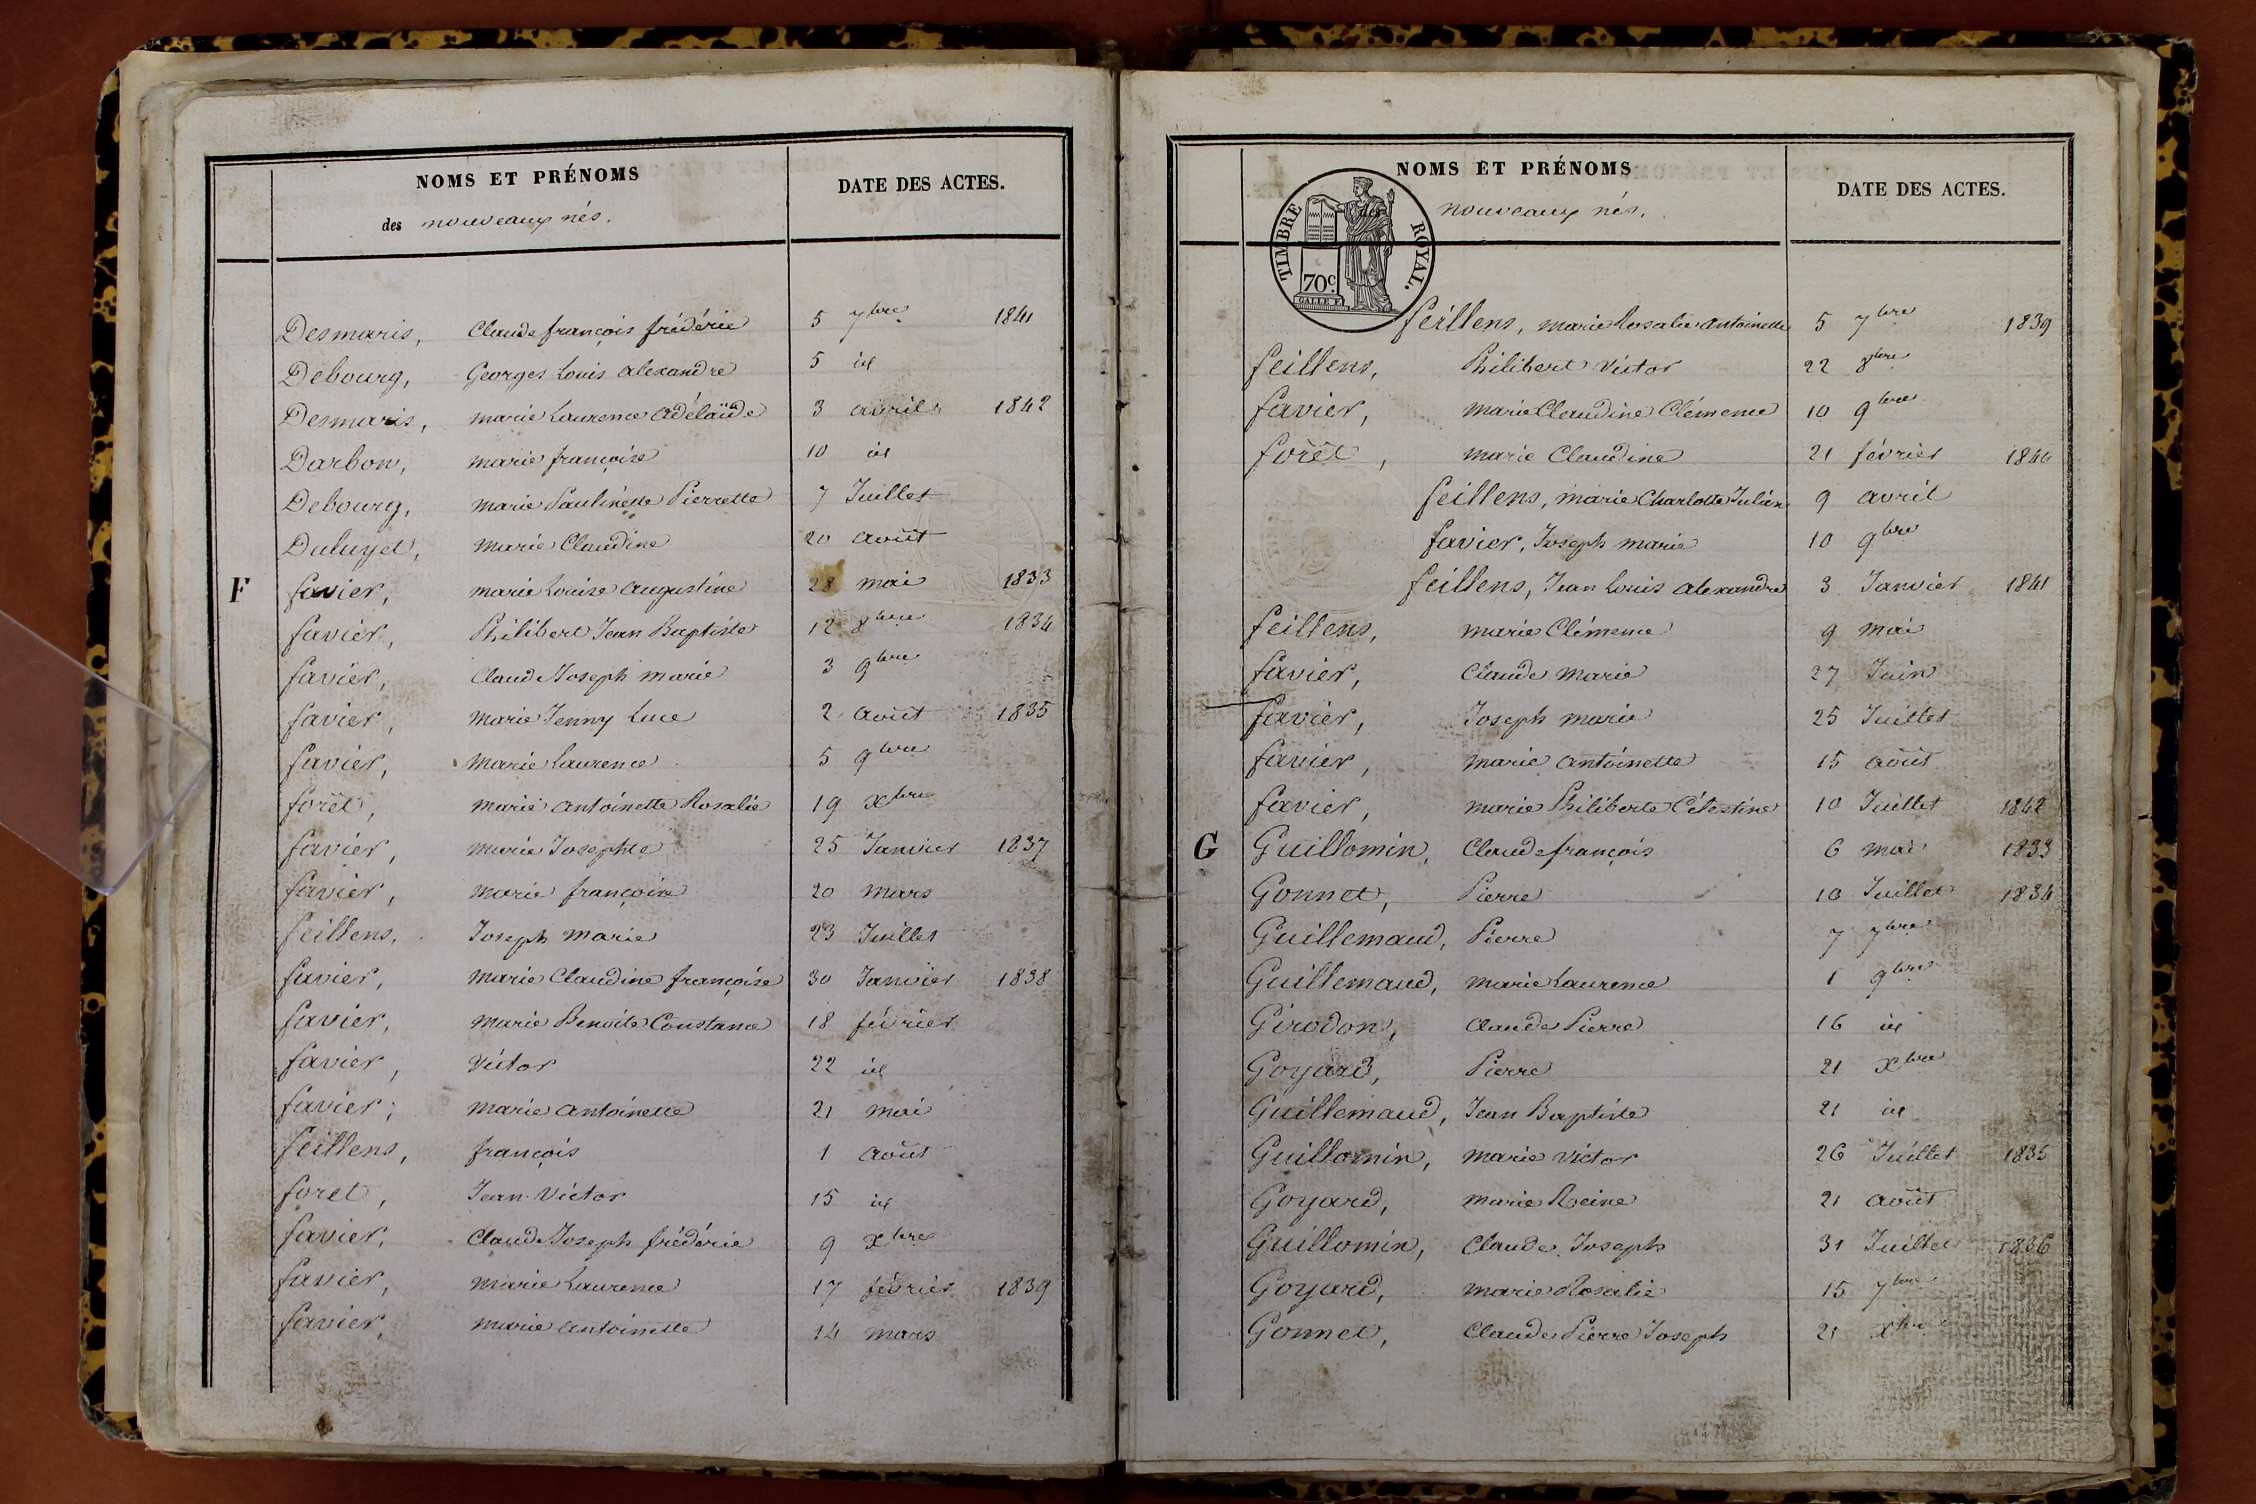 NOMS ET PRÉNOMS
DATE DES ACTES.
des nouveaux nés.
Desmaris, Claude françois frédéric 5 7bre 1841
Debourg, Georges Louis alexandre 5 id
Desmaris, marie Laurence adélaïde 3 avril 1842
Darbon, marie françoise 10 id
Debourg, marie Paulinette Pierrette 7 Juillet
Duluyet, marie Claudine 20 août
F favier, marie Louise augustine 28 mai 1833
favier, Philibert Jean Baptiste 12 8bre 1834
favier, Claude Joseph marie 3 9bre
favier, marie Jenny Luce 2 août 1835
favier, marie Laurence 5 9bre
forêt, marie antoinette Rosalie 19 Xbre
favier, marie Josephte 25 Janvier 1837
favier, marie françoise 20 mars
feillens, Joseph marie 23 Juillet
favier, marie Claudine françoise 30 Janvier 1838
favier, marie Benoite Constance 18 février
favier, Victor 22 id
favier, marie antoinette 21 mai
feillens, françois 1 août
foret, Jean Victor 15 id
favier, Claude Joseph frédéric 9 Xbre
favier, marie Laurence 17 février 1839
favier, marie antoinette 14 mars
NOMS ET PRÉNOMS
DATE DES ACTES.
des nouveaux nés.
TIMBRE ROYAL.
70c.
feillens, marie Rosalie antoinette 5 7bre 1839
feillens, Philibert Victor 22 8bre
favier, marie Claudine Clémence 10 9bre
forêt, marie Claudine 21 février 1840
feillens, marie Charlotte Julien 9 avril
favier, Joseph marie 10 9bre
feillens, Jean Louis alexandre 3 Janvier 1841
feillens, marie Clémence 9 mai
favier, Claude marie 27 Juin
favier, Joseph marie 25 Juillet
favier, marie antoinette 15 août
favier, marie Philiberte Célestine 10 Juillet 1842
G Guillomin, Claude françois 6 mai 1833
Gonnet, Pierre 10 Juillet 1834
Guillemaud, Pierre 7 7bre
Guillemaud, marie Laurence 1 9bre
Girodon, Claude Pierre 16 id
Goyard, Pierre 21 Xbre
Guillemaud, Jean Baptiste 21 id
Guillomin, marie Victor 26 Juillet 1835
Goyard, marie Reine 21 août
Guillomin, Claude Joseph 31 Juillet 1836
Goyard, marie Rosalie 15 7bre
Gonnet, Claude Pierre Joseph 21 Xbre